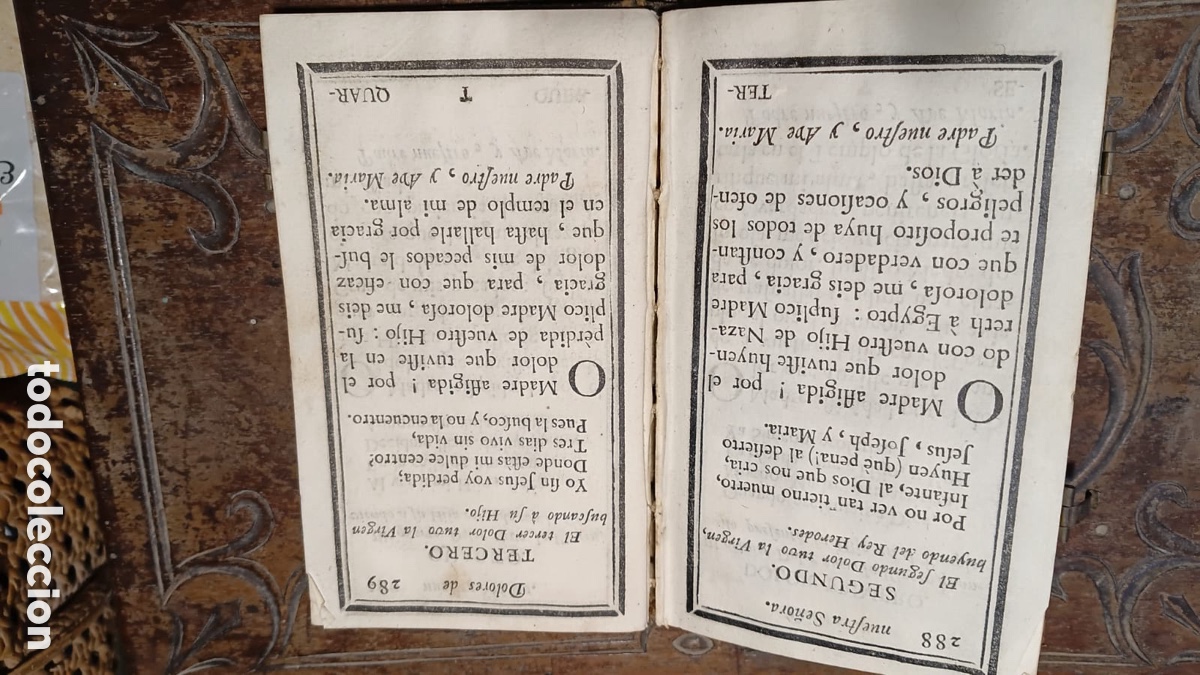 288 nueſtra Señora.
SEGUNDO.
El ſegundo Dolor tuvo la Virgen,
huyendo del Rey Herodes.
Por no ver tan tierno muerto,
Infante, al Dios que nos cria,
Huyen (què pena!) al deſierto
Jeſus, Joſeph, y Maria.
O Madre afligida ! por el
dolor que tuviſte huyen-
do con vueſtro Hijo de Naza-
reth à Egypto : ſuplico Madre
doloroſa, me deis gracia, para
que con verdadero, y conſtan-
te propoſito huya de todos los
peligros, y ocaſiones de ofen-
der à Dios.
Padre nueſtro, y Ave Maria.
TER-
Dolores de 289
TERCERO.
El tercer Dolor tuvo la Virgen
buſcando à ſu Hijo.
Yo ſin Jeſus voy perdida;
Donde eſtàs mi dulce centro?
Tres dias vivo sin vida,
Pues la buſco, y no la encuentro.
O Madre afligida ! por el
dolor que tuviſte en la
perdida de vueſtro Hijo : ſu-
plico Madre doloroſa, me deis
gracia, para que con eficaz
dolor de mis pecados le buſ-
que, haſta hallarle por gracia
en el templo de mi alma.
Padre nueſtro, y Ave Maria.
T QUAR-
todocoleccion